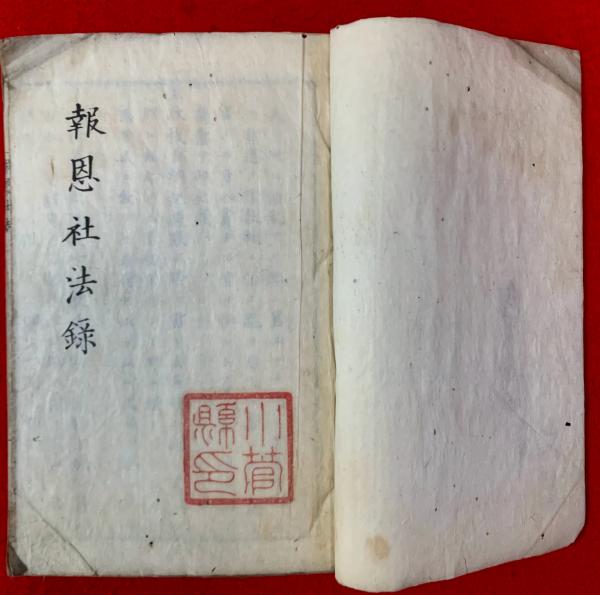 報恩社法錄
小菅
縣印